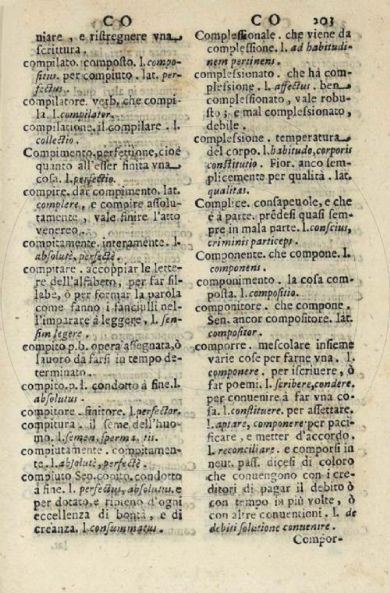 C O
niare, e ristregnere vna
scrittura.
compilato. composto. l. compo-
situs. per compiuto. lat. per-
fectus.
compilatore. verb. che compi-
la. l. compilator.
compilatione. il compilare. l.
collectio.
Compimento. perfettione, cioè
quanto all'esser finita vna
cosa. l. perfectio.
compire. dar compimento. lat.
complere, e compire assolu-
tamente, vale finire l'atto
venereo.
compitamente. interamente. l.
absolutè, perfectè.
compitare. accoppiar le lette-
re dell'alfabeto, per far sil-
labe, ò per formar la parola
come fanno i fanciulli nel-
l'imparare à leggere. l. sen-
sim legere.
compito. p. b. opera assegnata, ò
lauoro da farsi in tempo de-
terminato.
compito. p. l. condotto à fine. l.
absolutus.
compitore. finitore. l. perfector.
compitura. il seme dell'huo-
mo. l. semen, sperma, tis.
compiutamente. compitamen-
te. l. absolutè, perfectè.
compiuto Sen. copito. condotto
à fine. l. perfectus, absolutus. e
per dotato, e ripieno d'ogni
eccellenza di bontà, e di
creanza. l. consummatus.
C O 203
Complessionale. che viene da
complessione. l. ad habitudi-
nem pertinens.
complessionato. che hà com-
plessione. l. affectus. ben
complessionato, vale robu-
sto; e mal complessionato,
debile.
complessione. temperatura
del corpo. l. habitudo, corporis
constitutio. Fior. anco sem-
plicemente per qualità. lat.
qualitas.
Complice. consapeuole, e che
è à parte. prẽdesi quasi sem-
pre in mala parte. l. conscius,
criminis particeps.
Componente. che compone. l.
componens.
componimento. la cosa com-
posta. l. compositio.
componitore. che compone.
Sen. ancor compositore. lat.
compositor.
comporre. mescolare insieme
varie cose per farne vna. l.
componere. per iscriuere, ò
far poemi. l. scribere, condere.
per conuenire à far vna co-
sa. l. constituere. per assettare.
l. aptare, componere. per paci-
ficare, e metter d'accordo.
l. reconciliare. e comporsi in
neut. pass. dicesi di coloro
che conuengono con i cre-
ditori di pagar il debito ò
con tempo in più volte, ò
con altre conuentioni. l. de
debiti solutione conuenire.
Compor-